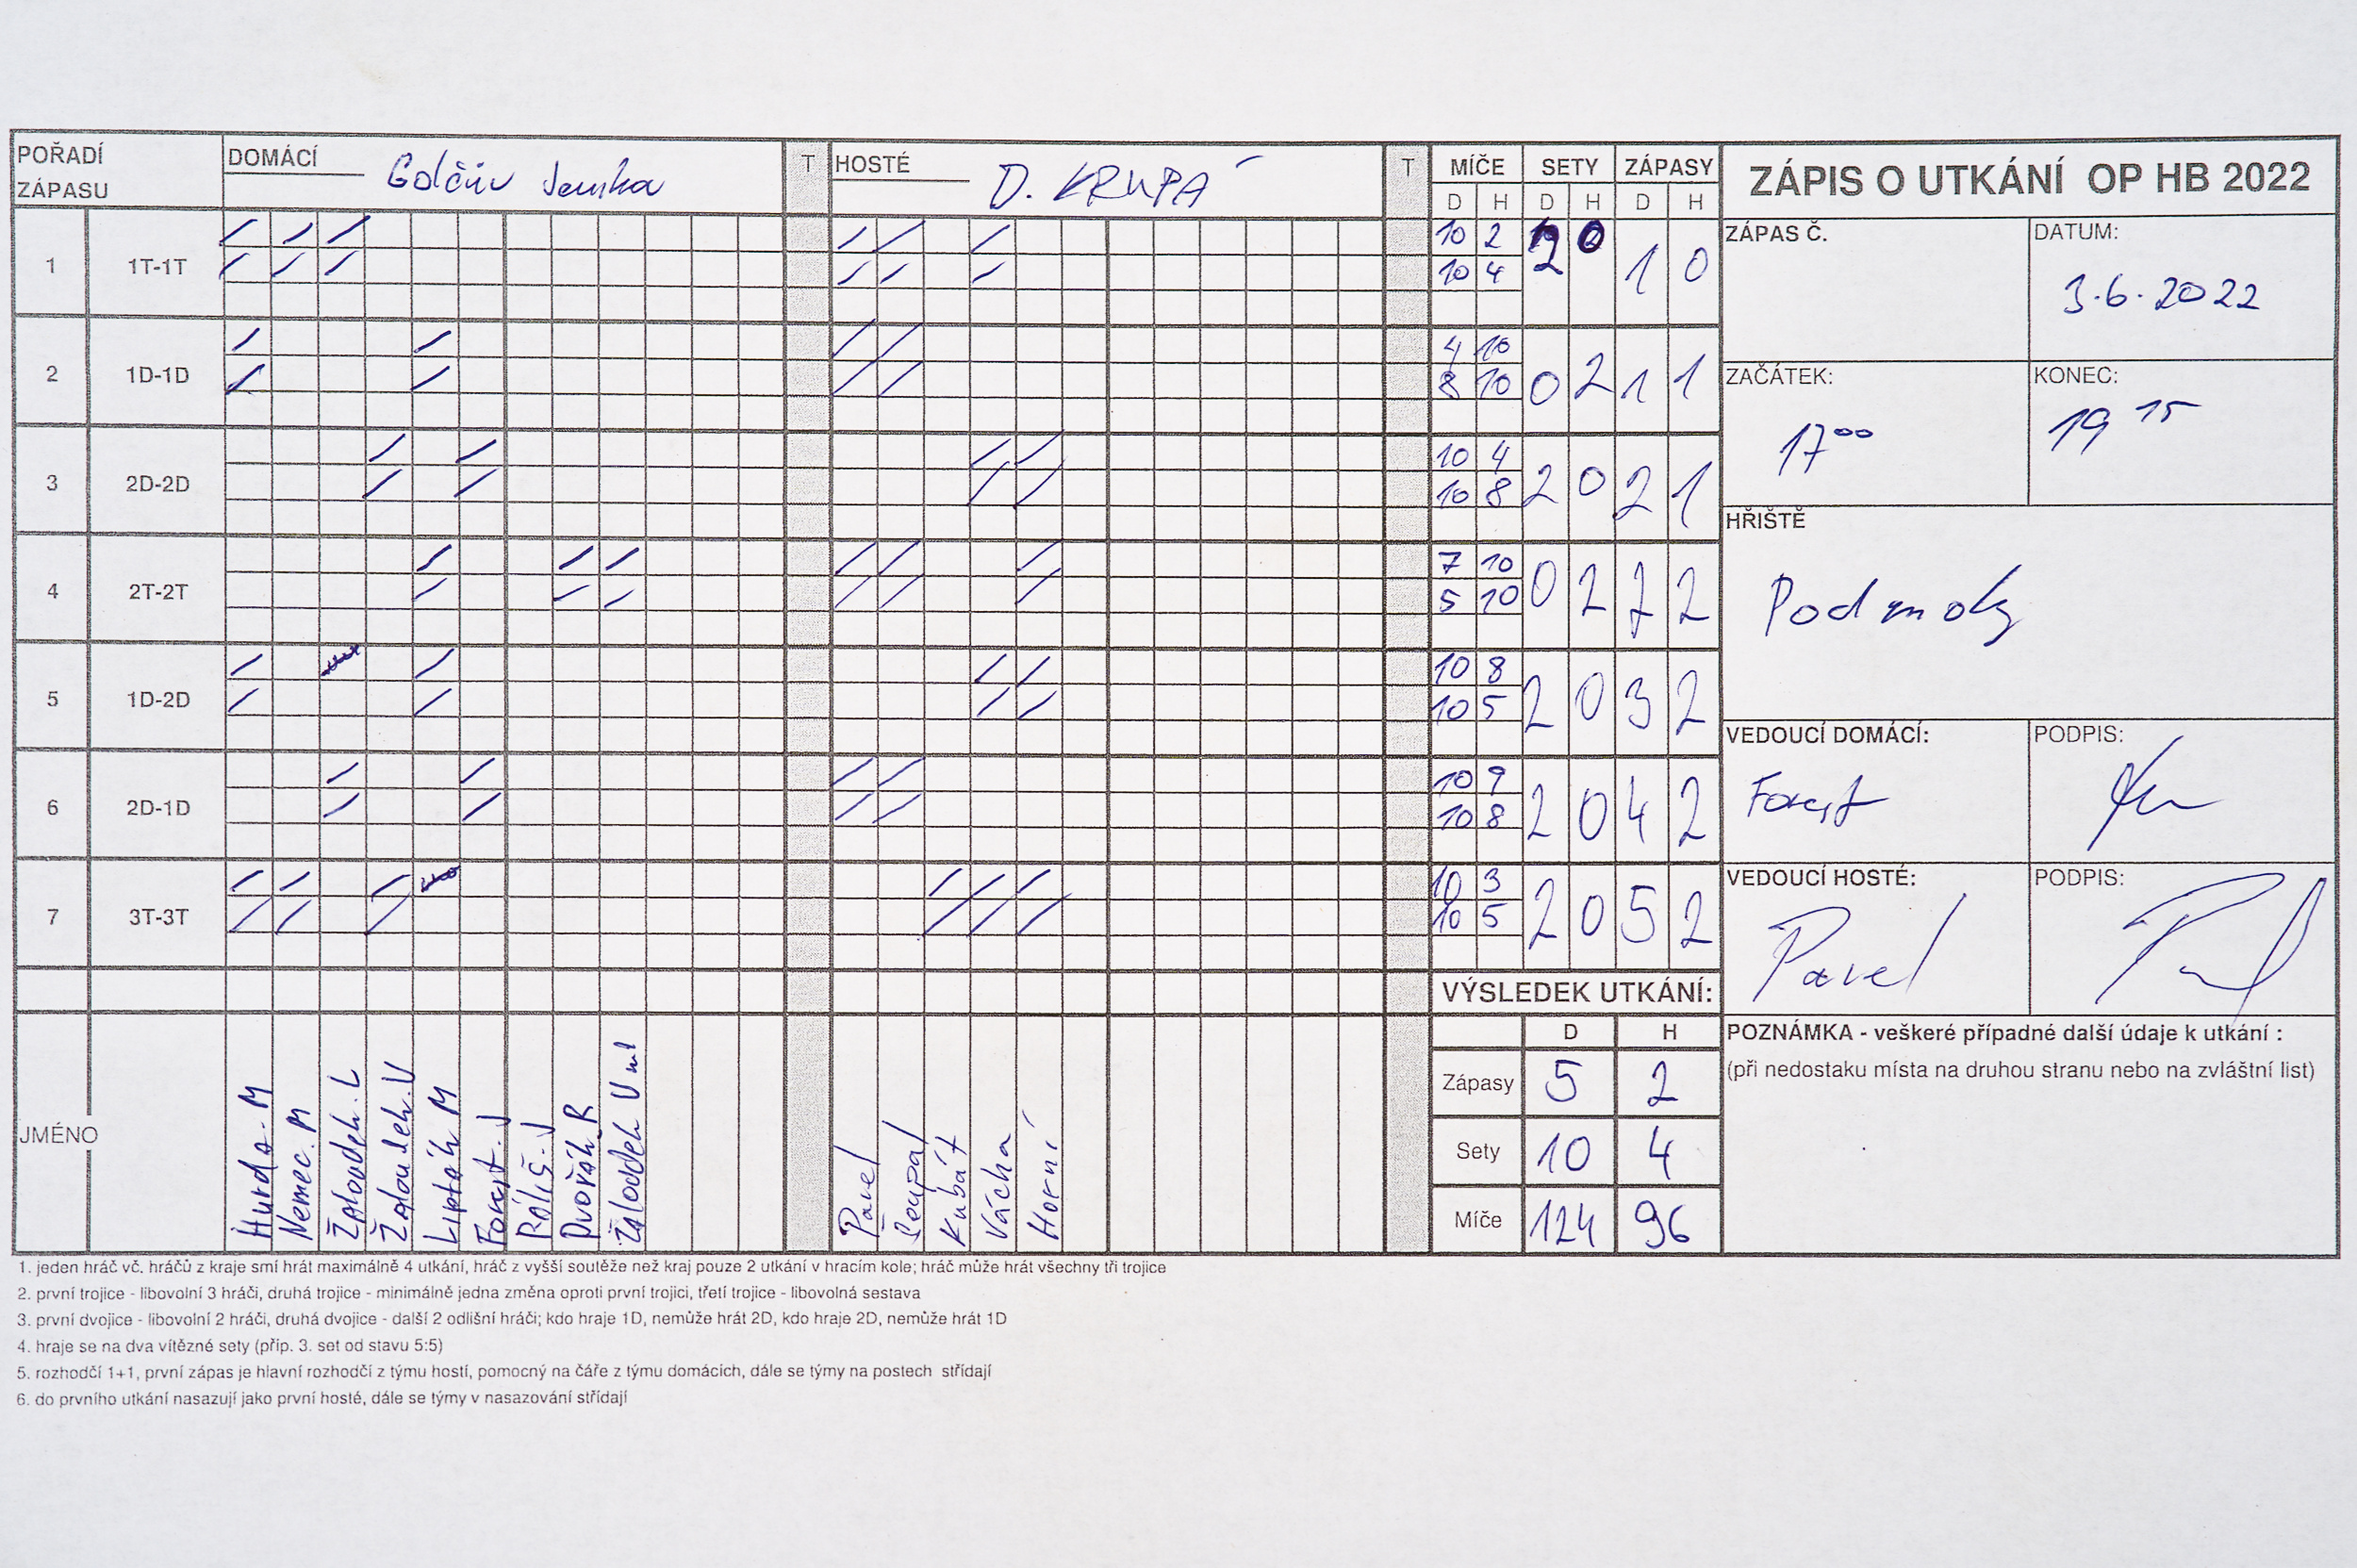 POŘADÍ ZÁPASU DOMÁCÍ Golčův Jeníkov T HOSTÉ D. KRUPÁ T MÍČE SETY ZÁPASY
D H D H D H
ZÁPIS O UTKÁNÍ OP HB 2022
1 1T-1T 10 2 2 0 1 0
10 4
2 1D-1D 4 10 0 2 1 1
8 10
3 2D-2D 10 4 2 0 2 1
10 8
4 2T-2T 7 10 0 2 2 2
5 10
5 1D-2D 10 8 2 0 3 2
10 5
6 2D-1D 10 9 2 0 4 2
10 8
7 3T-3T 10 3 2 0 5 2
10 5
ZÁPAS Č.
DATUM:
3.6.2022
ZAČÁTEK:
17⁰⁰
KONEC:
19 15
HŘIŠTĚ
Podmoky
VEDOUCÍ DOMÁCÍ:
Forejt
PODPIS:
VEDOUCÍ HOSTÉ:
Pavel
PODPIS:
VÝSLEDEK UTKÁNÍ:
D H
Zápasy 5 2
Sety 10 4
Míče 124 96
POZNÁMKA - veškeré případné další údaje k utkání :
(při nedostaku místa na druhou stranu nebo na zvláštní list)
JMÉNO
Hurda. M
Nemec. M
Žaloudek. L
Žaloudek. V
Lipták M
Forejt. J
Róliš. J
Dvořák. R
Žaloudek V ml
Pavel
Kubát
Vácha
Horní
1. jeden hráč vč. hráčů z kraje smí hrát maximálně 4 utkání, hráč z vyšší soutěže než kraj pouze 2 utkání v hracím kole; hráč může hrát všechny tři trojice
2. první trojice - libovolní 3 hráči, druhá trojice - minimálně jedna změna oproti první trojici, třetí trojice - libovolná sestava
3. první dvojice - libovolní 2 hráči, druhá dvojice - další 2 odlišní hráči; kdo hraje 1D, nemůže hrát 2D, kdo hraje 2D, nemůže hrát 1D
4. hraje se na dva vítězné sety (příp. 3. set od stavu 5:5)
5. rozhodčí 1+1, první zápas je hlavní rozhodčí z týmu hostí, pomocný na čáře z týmu domácích, dále se týmy na postech střídají
6. do prvního utkání nasazují jako první hosté, dále se týmy v nasazování střídají